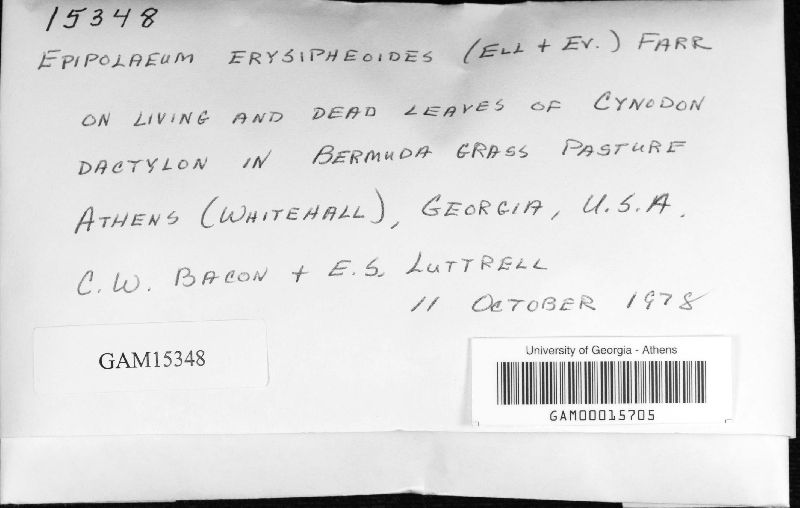 15348
EPIPOLAEUM ERYSIPHEOIDES (ELL + EV.) FARR
ON LIVING AND DEAD LEAVES OF CYNODON
DACTYLON IN BERMUDA GRASS PASTURE
ATHENS (WHITEHALL), GEORGIA, U.S.A.
C.W. BACON + E.S. LUTTRELL
11 OCTOBER 1978
GAM15348
University of Georgia - Athens
GAM00015705